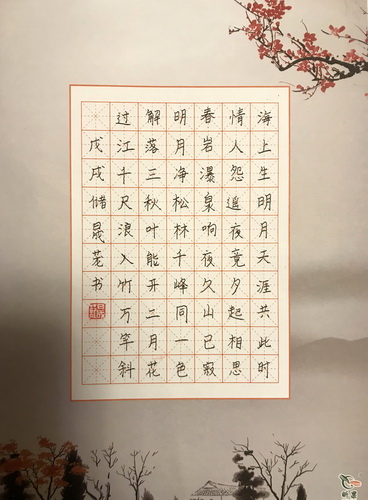 海上生明月天涯共此时
情人怨遥夜竟夕起相思
春岩瀑泉响夜久山已寂
明月净松林千峰同一色
解落三秋叶能开二月花
过江千尺浪入竹万竿斜
戊戌储晟茏书